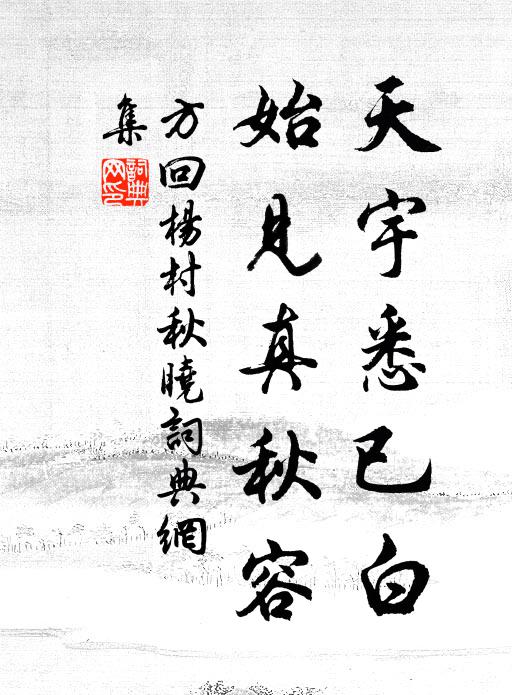 天宇悉已白
始見真秋容
方回楊村秋曉詞典網
集
詞典
网印